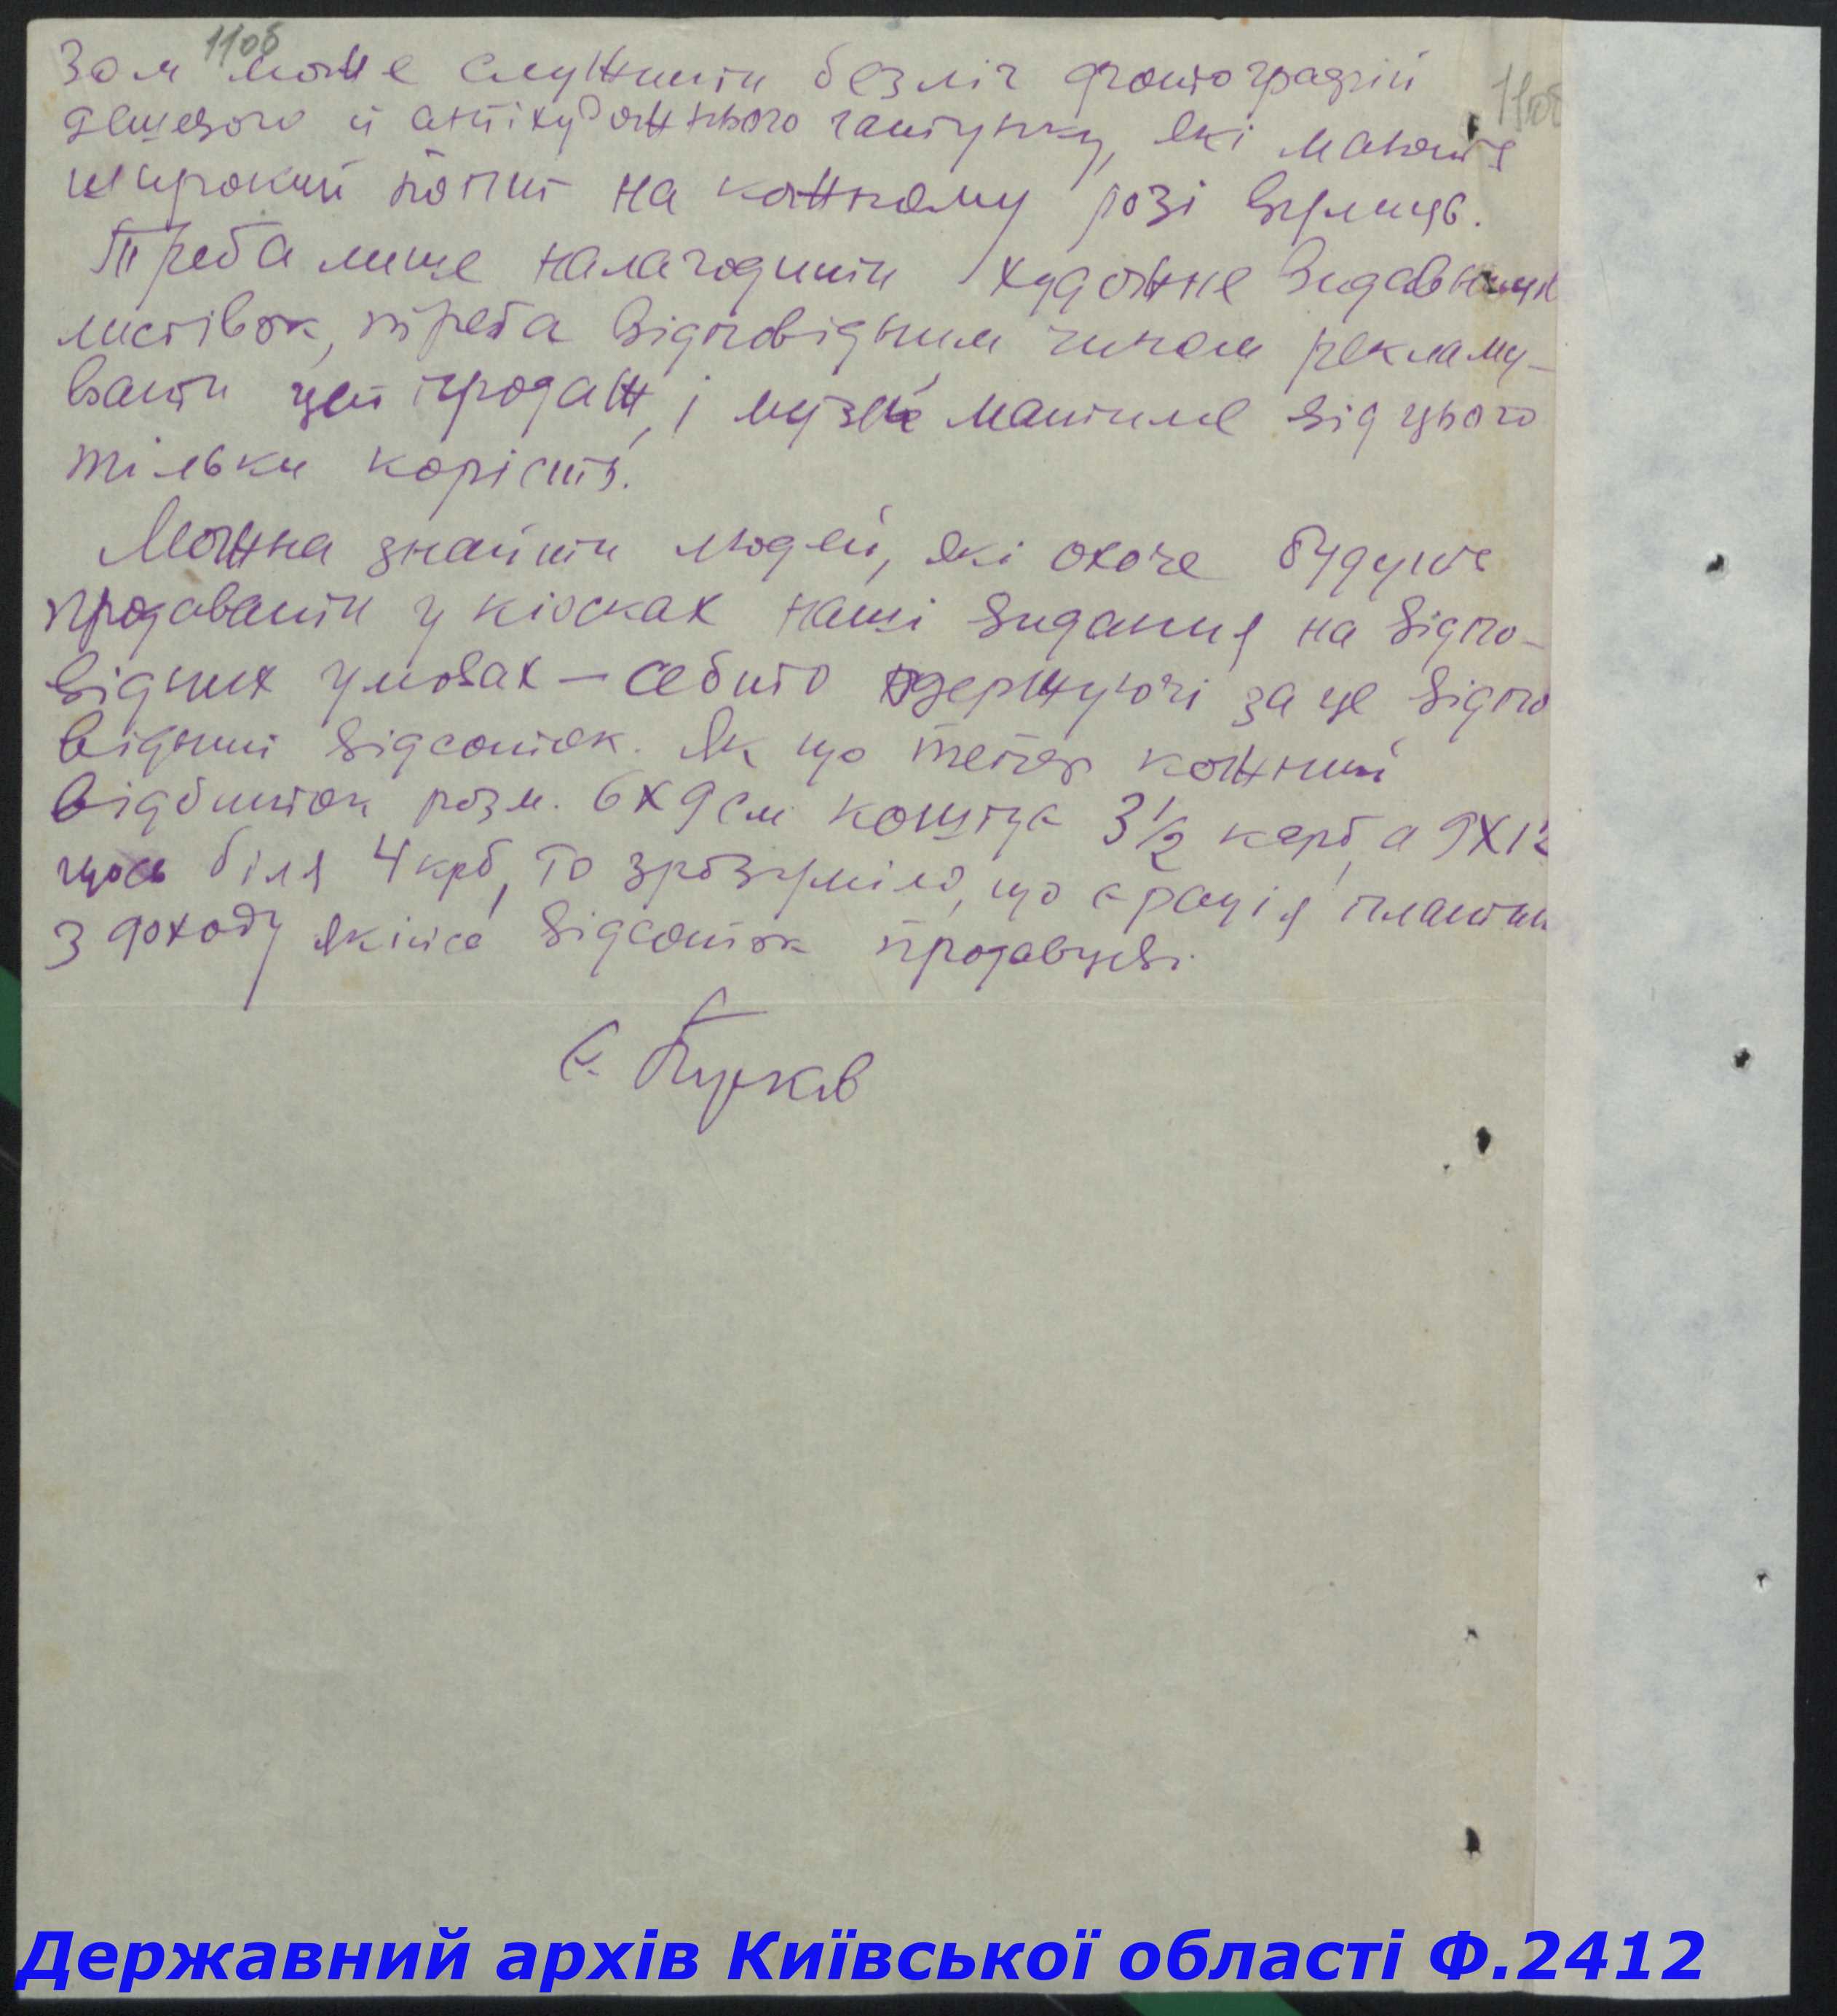 11об
11об
зом може служити безліч фотографій
дешевого й антихудожнього гатунку, які мають
широкий попит на кожному розі вулиць.
Треба лише налагодити художнє видавництв
листівок, треба відповідним чином рекламу-
вати цей продаж, і музей матиме від цього
тільки корість.
Можна знайти людей, які охоче будуть
продавати у кіосках наші видання на відпо-
відних умовах — себто одержуючі за це відпо
відний відсоток. Як що тепер кожний
відбиток розм. 6х9 см коштує 3½ карб, а 9х12
щось біля 4 крб, то зрозуміло, що є рація платити
з доходу якийсь відсоток продавцеві.
Є.
Державний архів Київської області Ф.2412